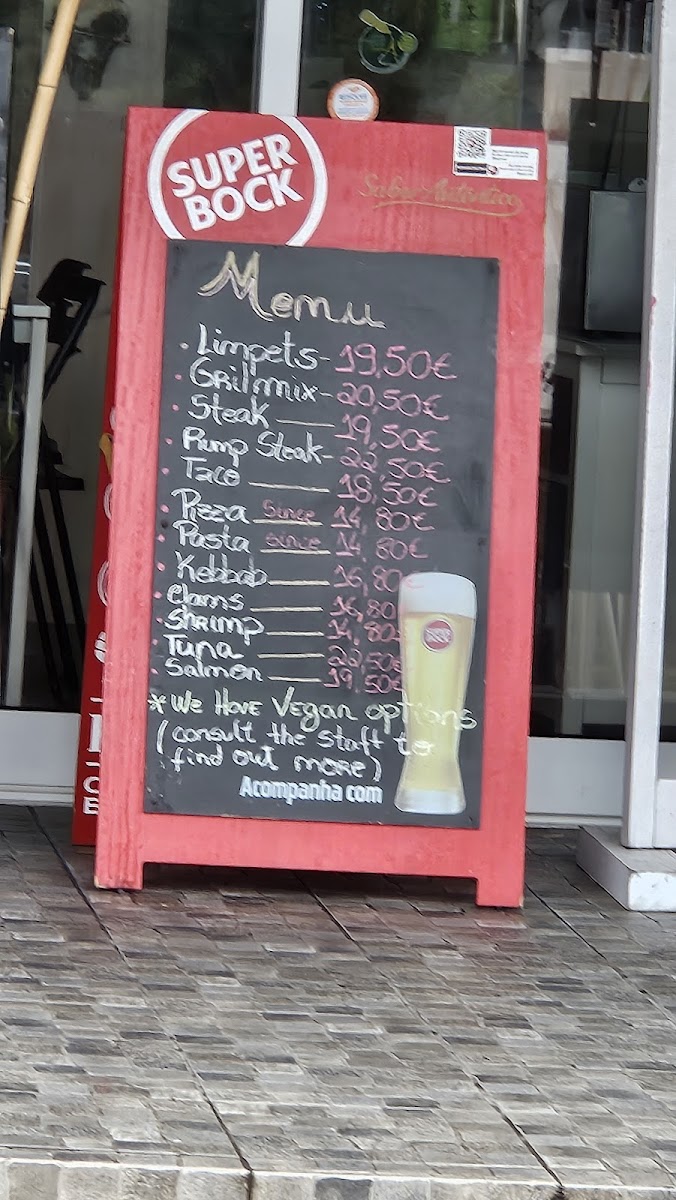 SUPER
BOCK
Sabor Autêntico
Menu
. Limpets- 19,50€
. Grilmix- 20,50€
. Steak — 19,50€
. Rump Steak- 22,50€
. Taco — 18,50€
. Pizza since 14,80€
. Pasta since 14,80€
. Kebbab — 16,80€
. Clams — 16,80
. Shrimp — 14,80€
. Tuna — 22,50€
. Salmon — 19,50€
* We Have Vegan options
(consult the staff to
find out more)
Acompanha com